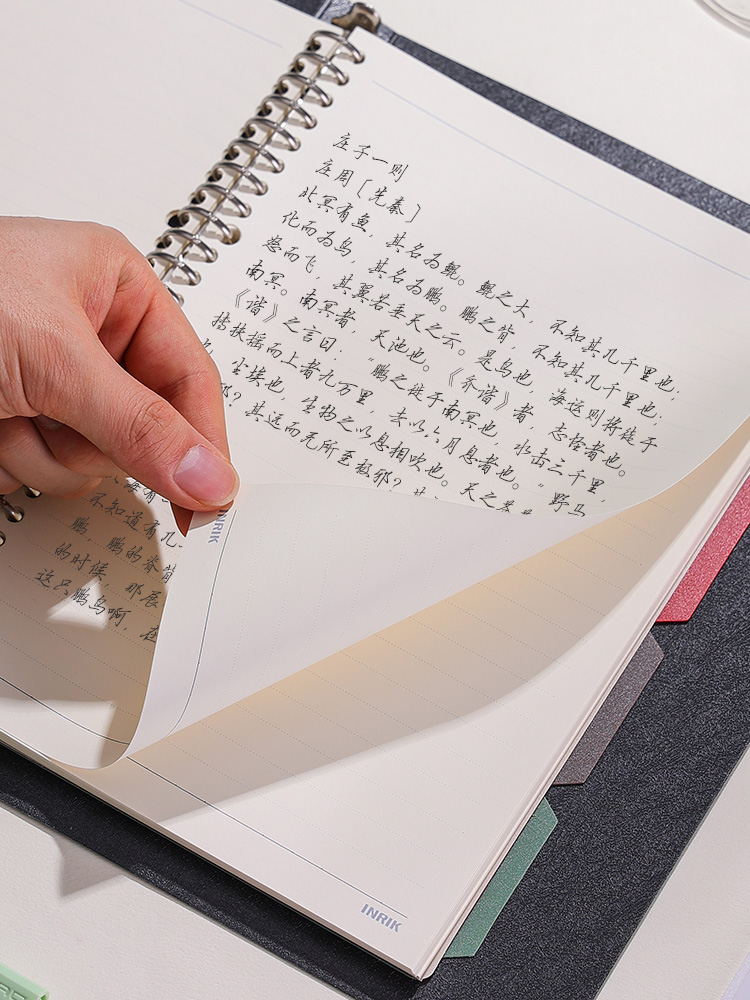 庄子一则
庄周〔先秦〕
北冥有鱼，其名为鲲。鲲之大，不知其几千里也；
化而为鸟，其名为鹏。鹏之背，不知其几千里也；
怒而飞，其翼若垂天之云。是鸟也，海运则将徙于
南冥。南冥者，天池也。《齐谐》者，志怪者也。
《谐》之言曰：“鹏之徙于南冥也，水击三千里，
抟扶摇而上者九万里，去以六月息者也。”野马
也，尘埃也，生物之以息相吹也。天之
邪？其远而无所至极邪？其
不知道有几
鹏，鹏的脊背
的时候，那展
这只鹏鸟啊，在
INRIK
INRIK